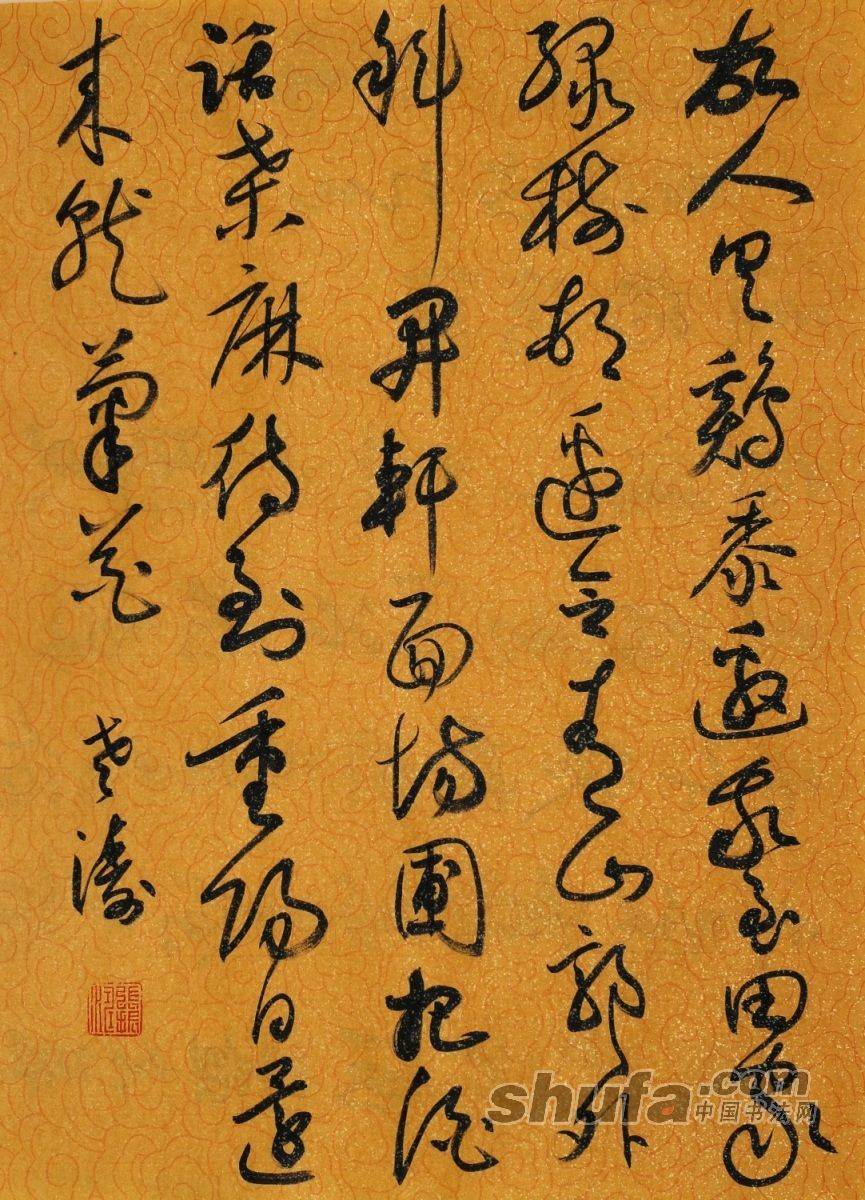 故人具鷄黍邀我至田家
綠樹邨邊合青山郭外
斜開軒面場圃把酒
話桑麻待到重陽日還
來就菊花
老濤
shufa.com
中国书法网